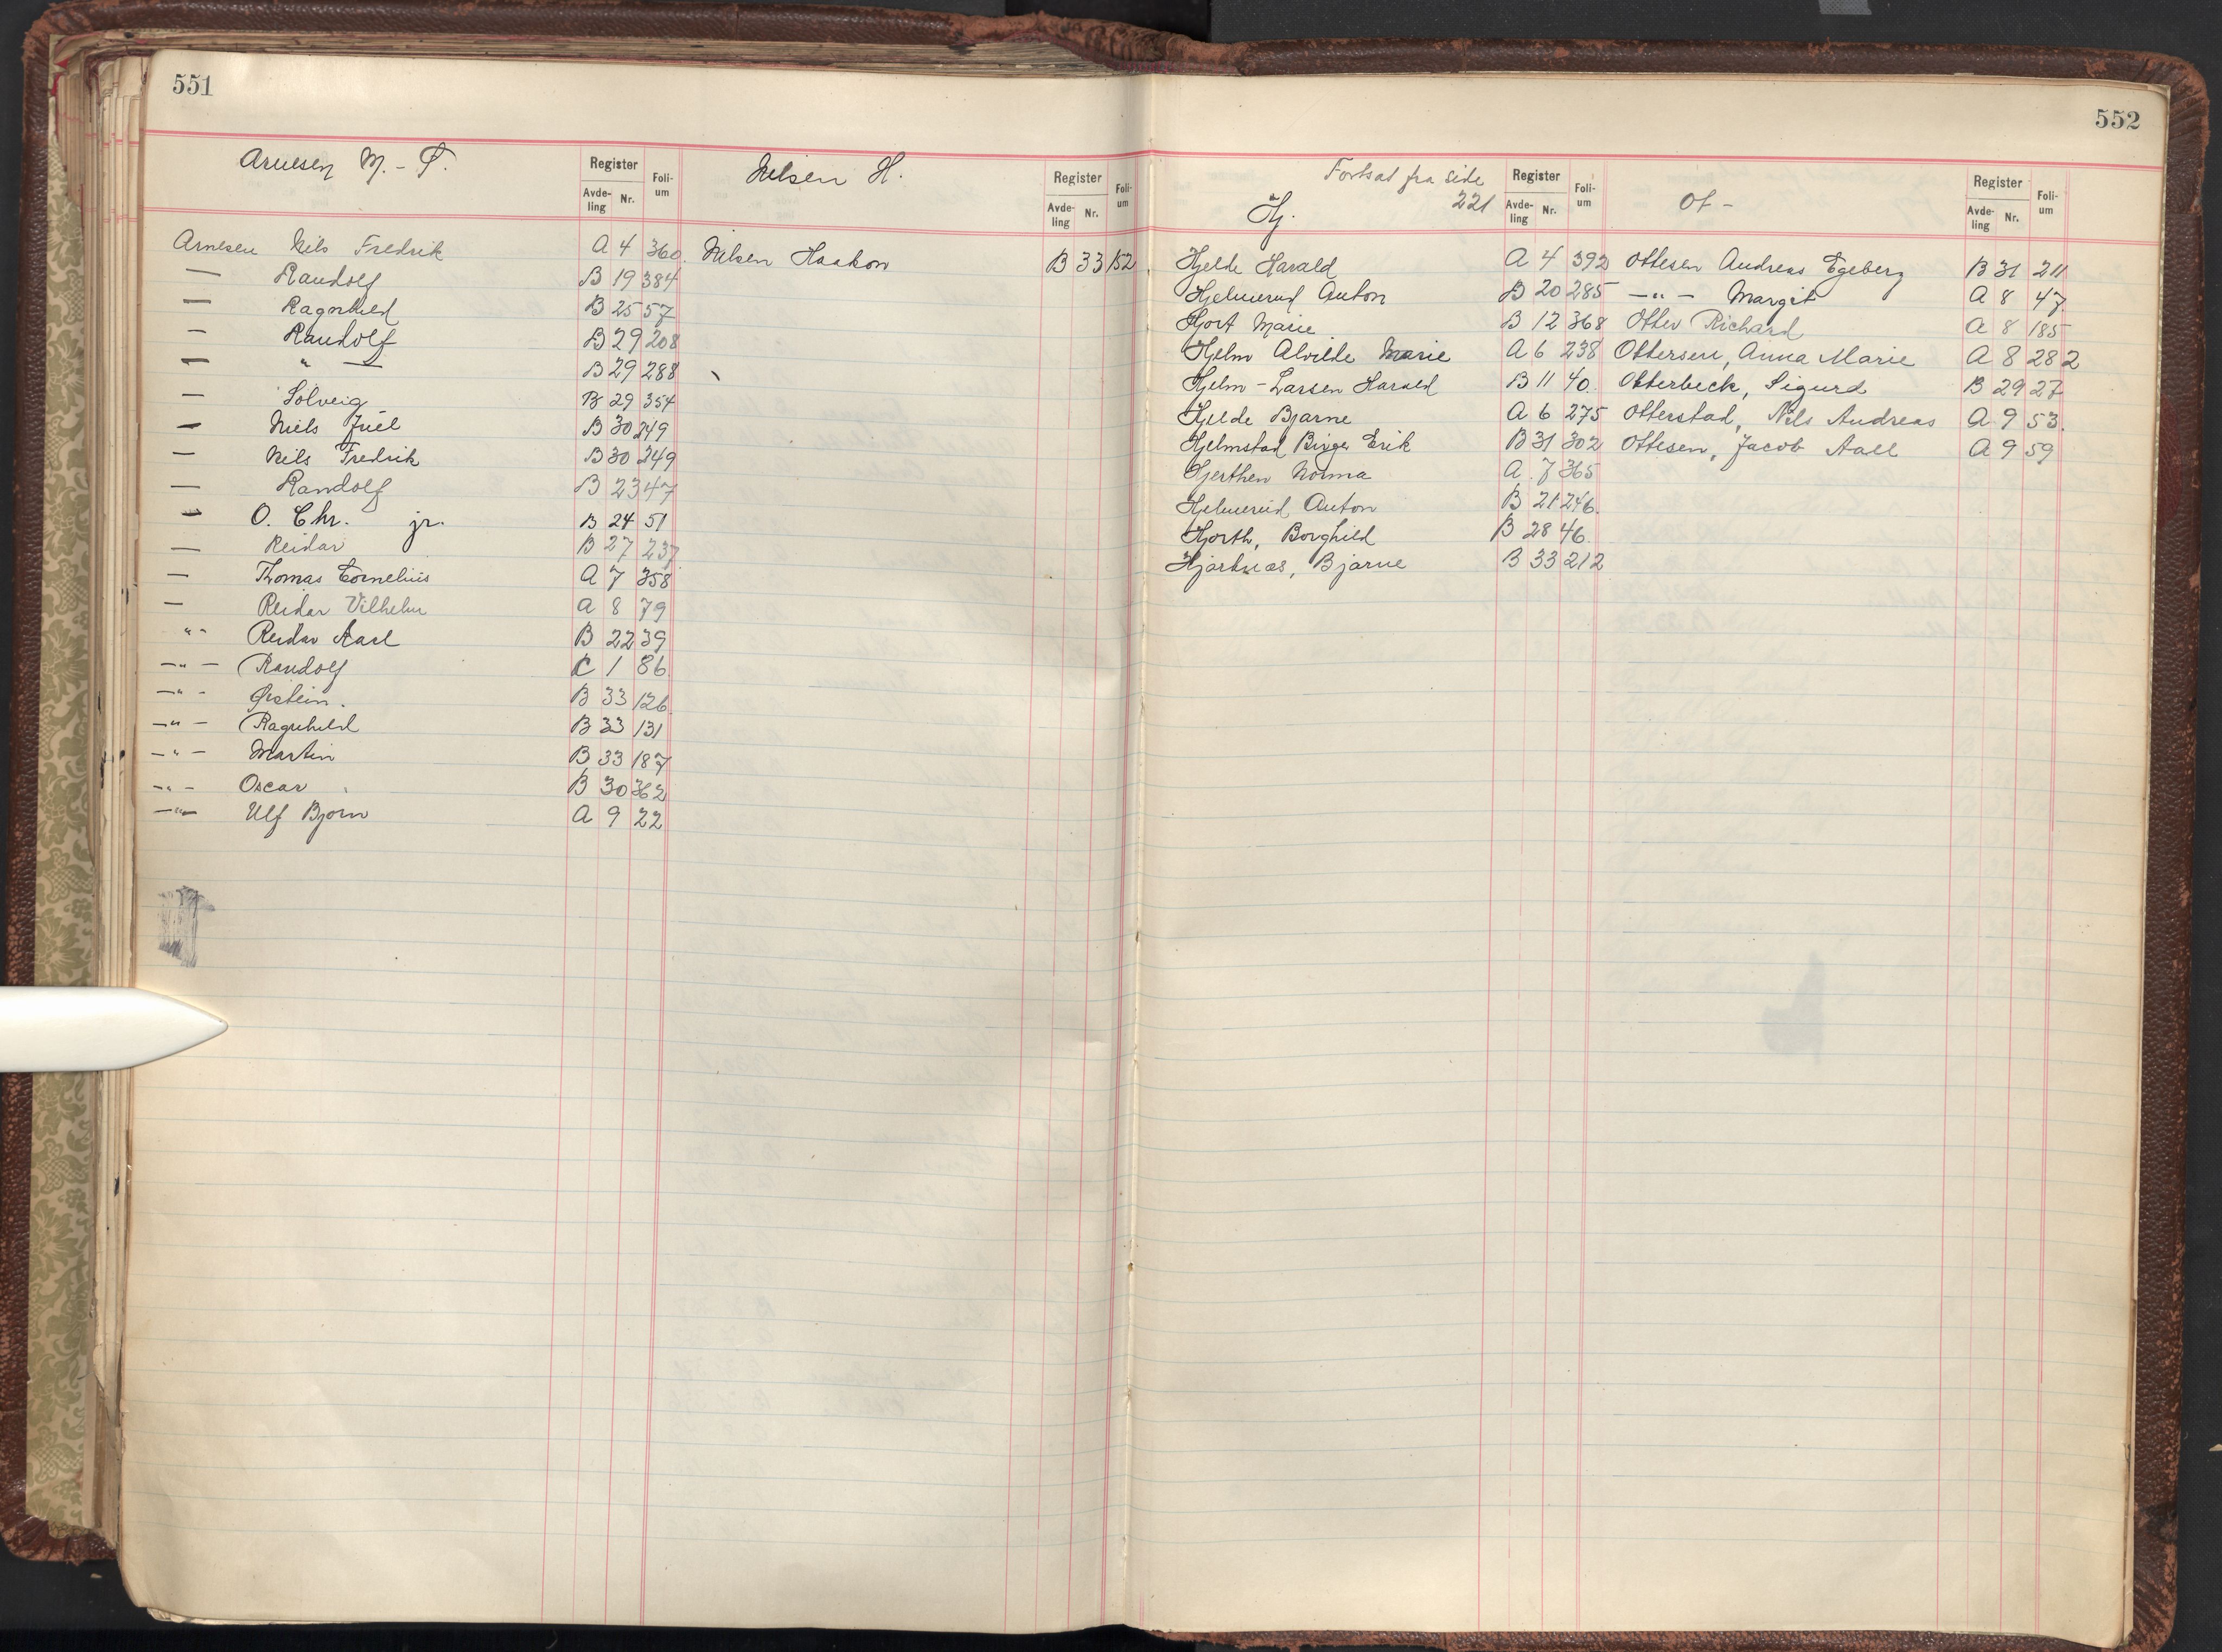 551
Arnesen M. - T.
Register
Avde-
ling
Nr.
Foli-
um
Arnesen Nils Fredrik A 4 360
— Randolf B 19 384
— Ragnhild B 25 57
— Randolf B 29 208
— " — B 29 288
— Solveig B 29 354
— Niels Juel B 30 249
— Nils Fredrik B 30 249
— Randolf B 23 47
— O. Chr. jr. B 24 51
— Reidar B 27 237
— Thomas Cornelius A 7 358
— Reidar Vilhelm A 8 79
"- Reidar B 22 39
-"- Randolf C 1 86
-"- Øistein. B 33 126
-"- Ragnhild B 33 131
-"- Martin B 33 187
-"- Oscar B 30 362
-"- Ulf Bjørn A 9 22
Nilsen H.
Register
Avde-
ling
Nr.
Foli-
um
Nilsen Haakon B 33 152
552
Fortsat fra side
221
Hj.
Register
Avde-
ling
Nr.
Foli-
um
Hjelde Harald A 4 392
Hjelmerud Anton B 20 285
Hjort Marie B 12 368
Hjelm Alvilde Marie A 6 238
Hjelm-Larsen Harald B 11 40.
Hjelde Bjarne A 6 275
Hjelmstad Birger Erik B 31 302
Hjerthen Norma A 7 365
Hjelmerud Anton B 21 246.
Hjorth, Borghild B 28 46.
Hjortnæs, Bjarne B 33 212
Ot -
Register
Avde-
ling
Nr.
Foli-
um
Ottesen Andreas Egeberg B 31 211
-"- Margit A 8 47.
Otter Richard A 8 185
Ottersen, Anna Marie A 8 282
Otterbeck, Sigurd B 29 27
Otterstad, Nils Andreas A 9 53.
Ottesen, Jacob Aall A 9 59